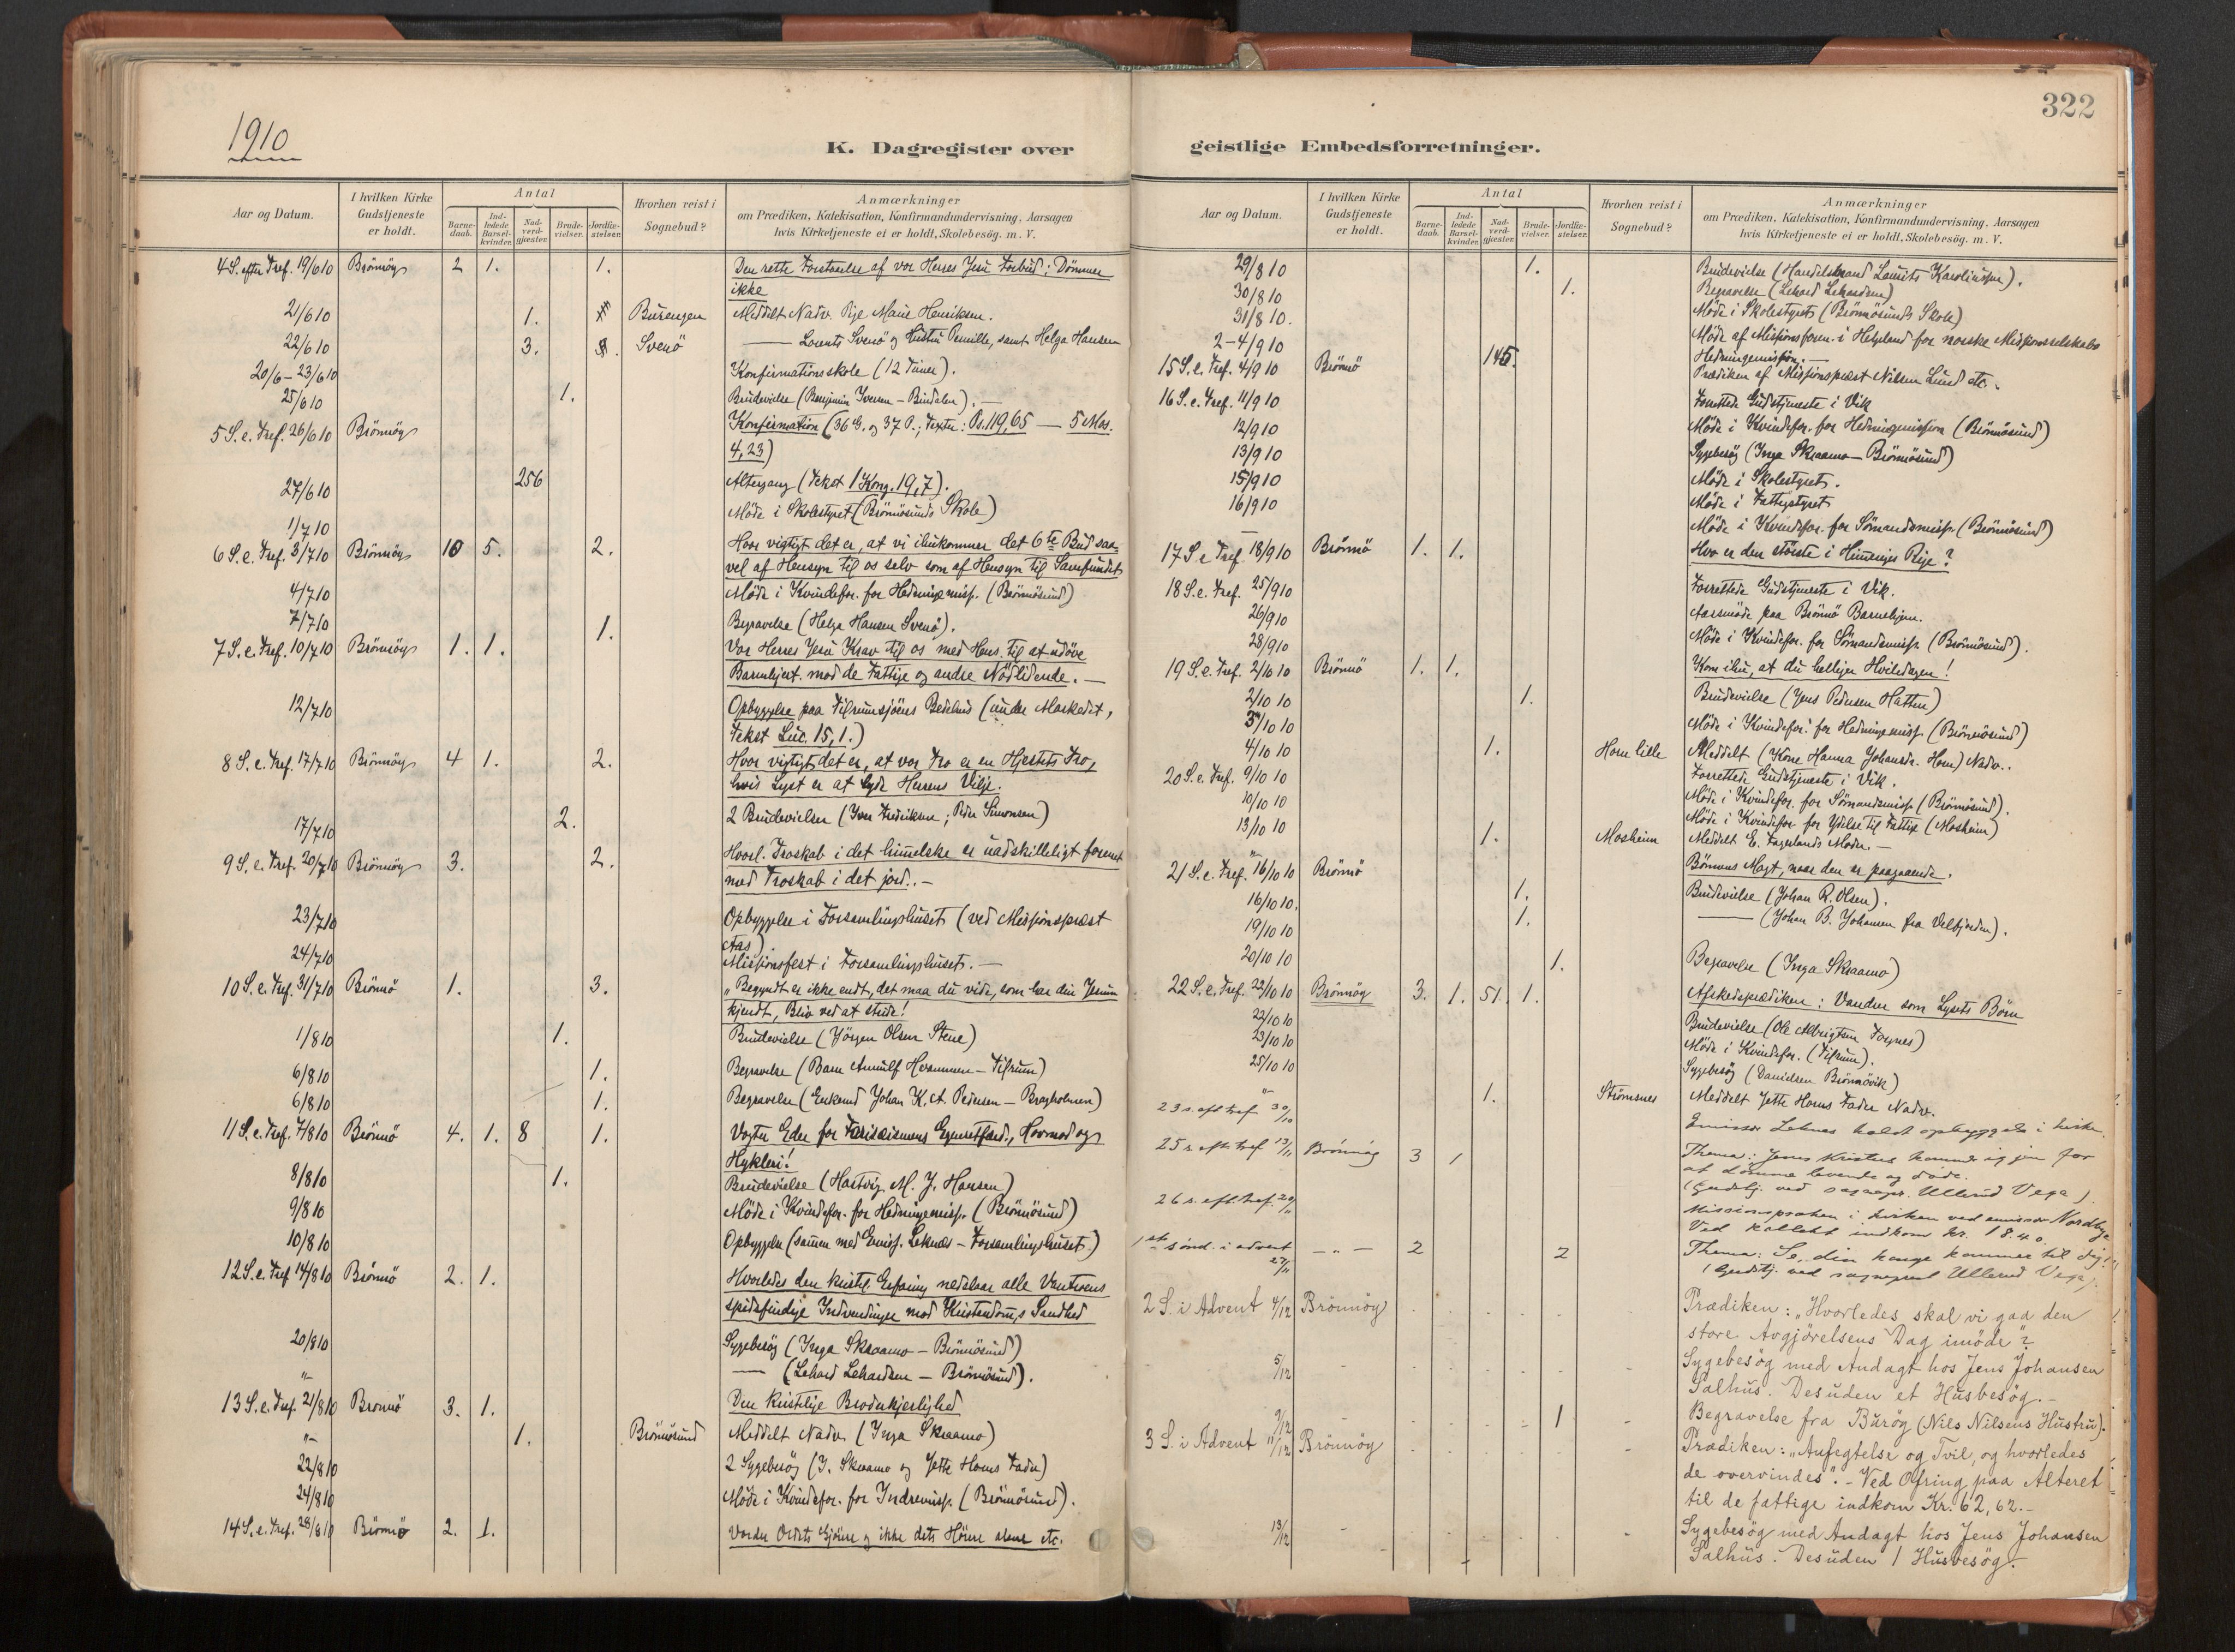 1910
K. Dagregister over
Aar og Datum.
I hvilken Kirke Gudstjeneste er holdt.
Antal
Barne-daab.
Ind-ledede Barsel-kvinder.
Nad-verd-gjester.
Brude-vielser.
Jordfæ-stelser.
Hvorhen reist i Sognebud?
Anmærkninger
om Prædiken, Katekisation, Konfirmandundervisning, Aarsagen
hvis Kirketjeneste ei er holdt, Skolebesøg. m. V.
4 S. efter Tref. 19/6 10 Brönnöy 2 1. 1. Den rette Forstaaelse af vor Herres Jesu Forbud: Dömmer
ikke
21/6 10 1. Burengen Meddelt Nadv. Pige Marie Henriksen.
22/6 10 3. Svenö — Lorents Svenö og Hustru Pernille, samt Helga Hansen
20/6 – 23/6 10 Konfirmationsskole (12 Timer).
25/6 10 1. Brudevielse (Benjamin Iversen – Bindalen). —
5 S. e. Tref. 26/6 10 Brönnöy Konfirmation (36 G. og 37 P.; Texter: Ps. 119, 65 — 5 Mos.
4, 23)
256 Altergang (Tekst 1 Kong. 19, 7).
27/6 10 Möde i Skolestyret (Brönnösunds Skole)
1/7 10
6 S. e. Tref. 3/7 10 Brönnöy 10 5. 2. Hvor vigtigt det er, at vi ihukommer det 6te Bud saa-
vel af Hensyn til os selv som af Hensyn til Samfundet
4/7 10 Möde i Kvindefor. for Hedningemiss. (Brönnösund)
7/7 10 1. Begravelse (Helga Hansen Svenö).
7 S. e. Tref. 10/7 10 Brönnöy 1. 1. Vor Herres Jesu Krav til os med Hens. til at udöve
Barmhjert. mod de Fattige og andre Nödlidende. —
12/7 10 Opbyggelse paa Tilrumsjöens Bedehus (under Markedet,
Tekst Luc. 15, 1.)
8 S. e. Tref. 17/7 10 Brönnöy 4 1. 2. Hvor vigtigt det er, at vor Tro er en Hjertets Tro,
hvis Lyst er at lyde Herrens Vilje.
17/7 10 2. 2 Brudevielser (Iver Fredriksen; Peder Simonsen)
9 S. e. Tref. 20/7 10 Brönnöy 3. 2. Hvorl. Troskab i det himmelske er uadskilleligt forenet
med Troskab i det jord.. –
23/7 10 Opbyggelse i Forsamlingshuset (ved Missjonspræst
Aas)
24/7 10 Missjonsfest i Forsamlingshuset. —
10 S. e. Tref. 31/7 10 Brönnö 1. 3. "Begyndt er ikke endt, det maa du vide, som har din Jesum
kjendt, Bliv ved at stride!
1/8 10 1. Brudevielse (Jörgen Olsen Stene)
6/8 10 1. Begravelse (Barn Arnulf Hermansen – Tilrum)
6/8 10 1. Begravelse (Enkemd Johan K. A. Pedersen – Bergholmen)
11 S. e. Tref. 7/8 10 Brönnö 4. 1. 8 1. Vogter Eder for Farisæismens Egenretfærd., Hovmod og
Hykleri!
8/8 10 1. Brudevielse (Hartvig M. J. Hansen)
9/8 10 Möde i Kvindefor. for Hedningemiss. (Brönnösund)
10/8 10 Opbyggelse (sammen med Emiss. Leknes – Forsamlingshuset)
12 S. e. Tref 14/8 10 Brönnö 2. 1. Hvorledes den kristel. Erfaring nedslaar alle Vantroens
spidsfindige Indvendinger mod Kristendom,s Sandhed
20/8 10 Sygebesög (Inga Skraamo – Brönnösund)
"– — (Lehard Lehardsen – Brönnösund).
13 S. e. Tref. 21/8 10 Brönnö 3. 1. Den kristelige Broderkjerlighed
"– 1. Brönnösund Meddelt Nadv. (Inga Skraamo)
22/8 10 2 Sygebesög (I. Skraamo og Jette Horns Fader)
24/8 10 Möde i Kvindefor. for Indremiss. (Brönnösund).
14 S. e. Tref. 28/8 10 Brönnö 2. 1. Vorder Ordets Gjörere og ikke dets Hörere alene etc.
322
geistlige Embedsforretninger.
Aar og Datum.
I hvilken Kirke Gudstjeneste er holdt.
Antal
Barne-daab.
Ind-ledede Barsel-kvinder.
Nad-verd-gjester.
Brude-vielser.
Jordfæ-stelser.
Hvorhen reist i Sognebud?
Anmærkninger
om Prædiken, Katekisation, Konfirmandundervisning, Aarsagen
hvis Kirketjeneste ei er holdt, Skolebesøg. m. V.
29/8 10 1. Brudevielse (Handelsmand Laurits Karoliussen).
30/8 10 1. Begravelse (Lehard Lehardsen)
31/8 10. Möde i Skolestyret (Brönnösunds Skole)
2–4/9 10 Möde af Missjonsforen. i Helgeland for norske Missjonsselskabs
Hedningemissjon. —
15 S. e. Tref. 4/9 10 Brönnö 145. Prædiken af Missjonspræst Nilsen Lund etc.
16 S. e. Tref. 11/9 10 Forrettede Gudstjeneste i Vik
12/9 10 Möde i Kvindefor. for Hedningemissjon (Brönnösund)
13/9 10 Sygebesög (Inga Skraamo – Brönnösund)
15/9 10 Möde i Skolestyret.
16/9 10 Möde i Fattigstyret
— Möde i Kvindefor. for Sömandsmiss. (Brönnösund)
17 S. e Tref. 18/9 10 Brönnö 1. 1. Hvo er den störste i Himmeriges Rige?
18 S. e. Tref. 25/9 10 Forrettede Gudstjeneste i Vik.
26/9 10 Aarsmöde paa Brönnö Barnehjem.
28/9 10 Möde i Kvindefor. for Sömandsmiss. (Brönnösund).
19 S. e. Tref. 2/10 10 Brönnö 1. 1. Kom ihu, at du helliger Hviledagen!
2/10 10 1. Brudevielse (Jens Pedersen Hatten)
3/10 10 Möde i Kvindefor. for Hedningemiss. (Brönnösund)
4/10 10 1. Horn lille Meddelt (Kone Hanna Johansdr. Horn) Nadv..
20 S. e. Tref. 9/10 10 Forrettede Gudstjeneste i Vik.
10/10 10 Möde i Kvindefor. for Sömandsmiss. (Brönnösund).
13/10 10 Möde i Kvindefor for Ydelse til Fattige (Mosheim)
" 1. Mosheim Meddelt E. Fagerlands Moder. —
21 S. e. Tref. 16/10 10 Brönnö Bönnens Magt, naar den er paagaaende.
16/10 10. 1. Brudevielse (Johan R. Olsen).
19/10 10 1. — (Johan B. Johansen fra Velfjorden).
20/10 10 1. Begravelse (Inga Skraamo)
22 S. e. Tref. 22/10 10 Brönnöy 3. 1. 51. 1. Afskedsprædiken: Vandrer som Lysets Börn
22/10 10 Brudevielse (Ole Albrigtsen Torgnes)
23/10 10 Möde i Kvindefor. (Tilrum).
25/10 10 Sygebesög (Danielsen Brönnövik)
" 1. Strömsnes Meddelt Jette Horns Fader Nadv.
23 s. eft tref 30/10 Emissær Leknes holdt opbyggelse i kirken.
25 s. eft. tref 13/11 Brönnöy 3 1 Thema: Jesus Kristus kommer igjen for
at dömme levende og döde.
(Gudstj. ved sognepr. Ullerud Vega).
26 s. eft. tref. 20/11 Missionspreken i kirken ved emissær Nordbye
Ved kollekt indkom kr. 18.40.
1ste sönd. i advent 27/11 – " – 2 2 Thema: Se, din konge kommer til dig!
(Gudstj. ved sogneprest Ullerud Vega).
2 S. i Advent 4/12 Brönnöy Prædiken: "Hvorledes skal vi gaa den
store Avgjörelsens Dag imöde"?
5/12 Sygebesög med Andagt hos Jens Johansen
Salhus. Desuden et Husbesög. –
9/12 1 Begravelse fra Buröy (Nils Nilsens Hustru).
3 S. i Advent 11/12 Brönnöy Prædiken: "Anfegtelse og Tvil, og hvorledes
de overvindes". – Ved Ofring paa Alteret
til de fattige indkom Kr. 62,62. –
13/12 Sygebesög med Andagt hos Jens Johansen
Salhus. Desuden 1 Husbesög.